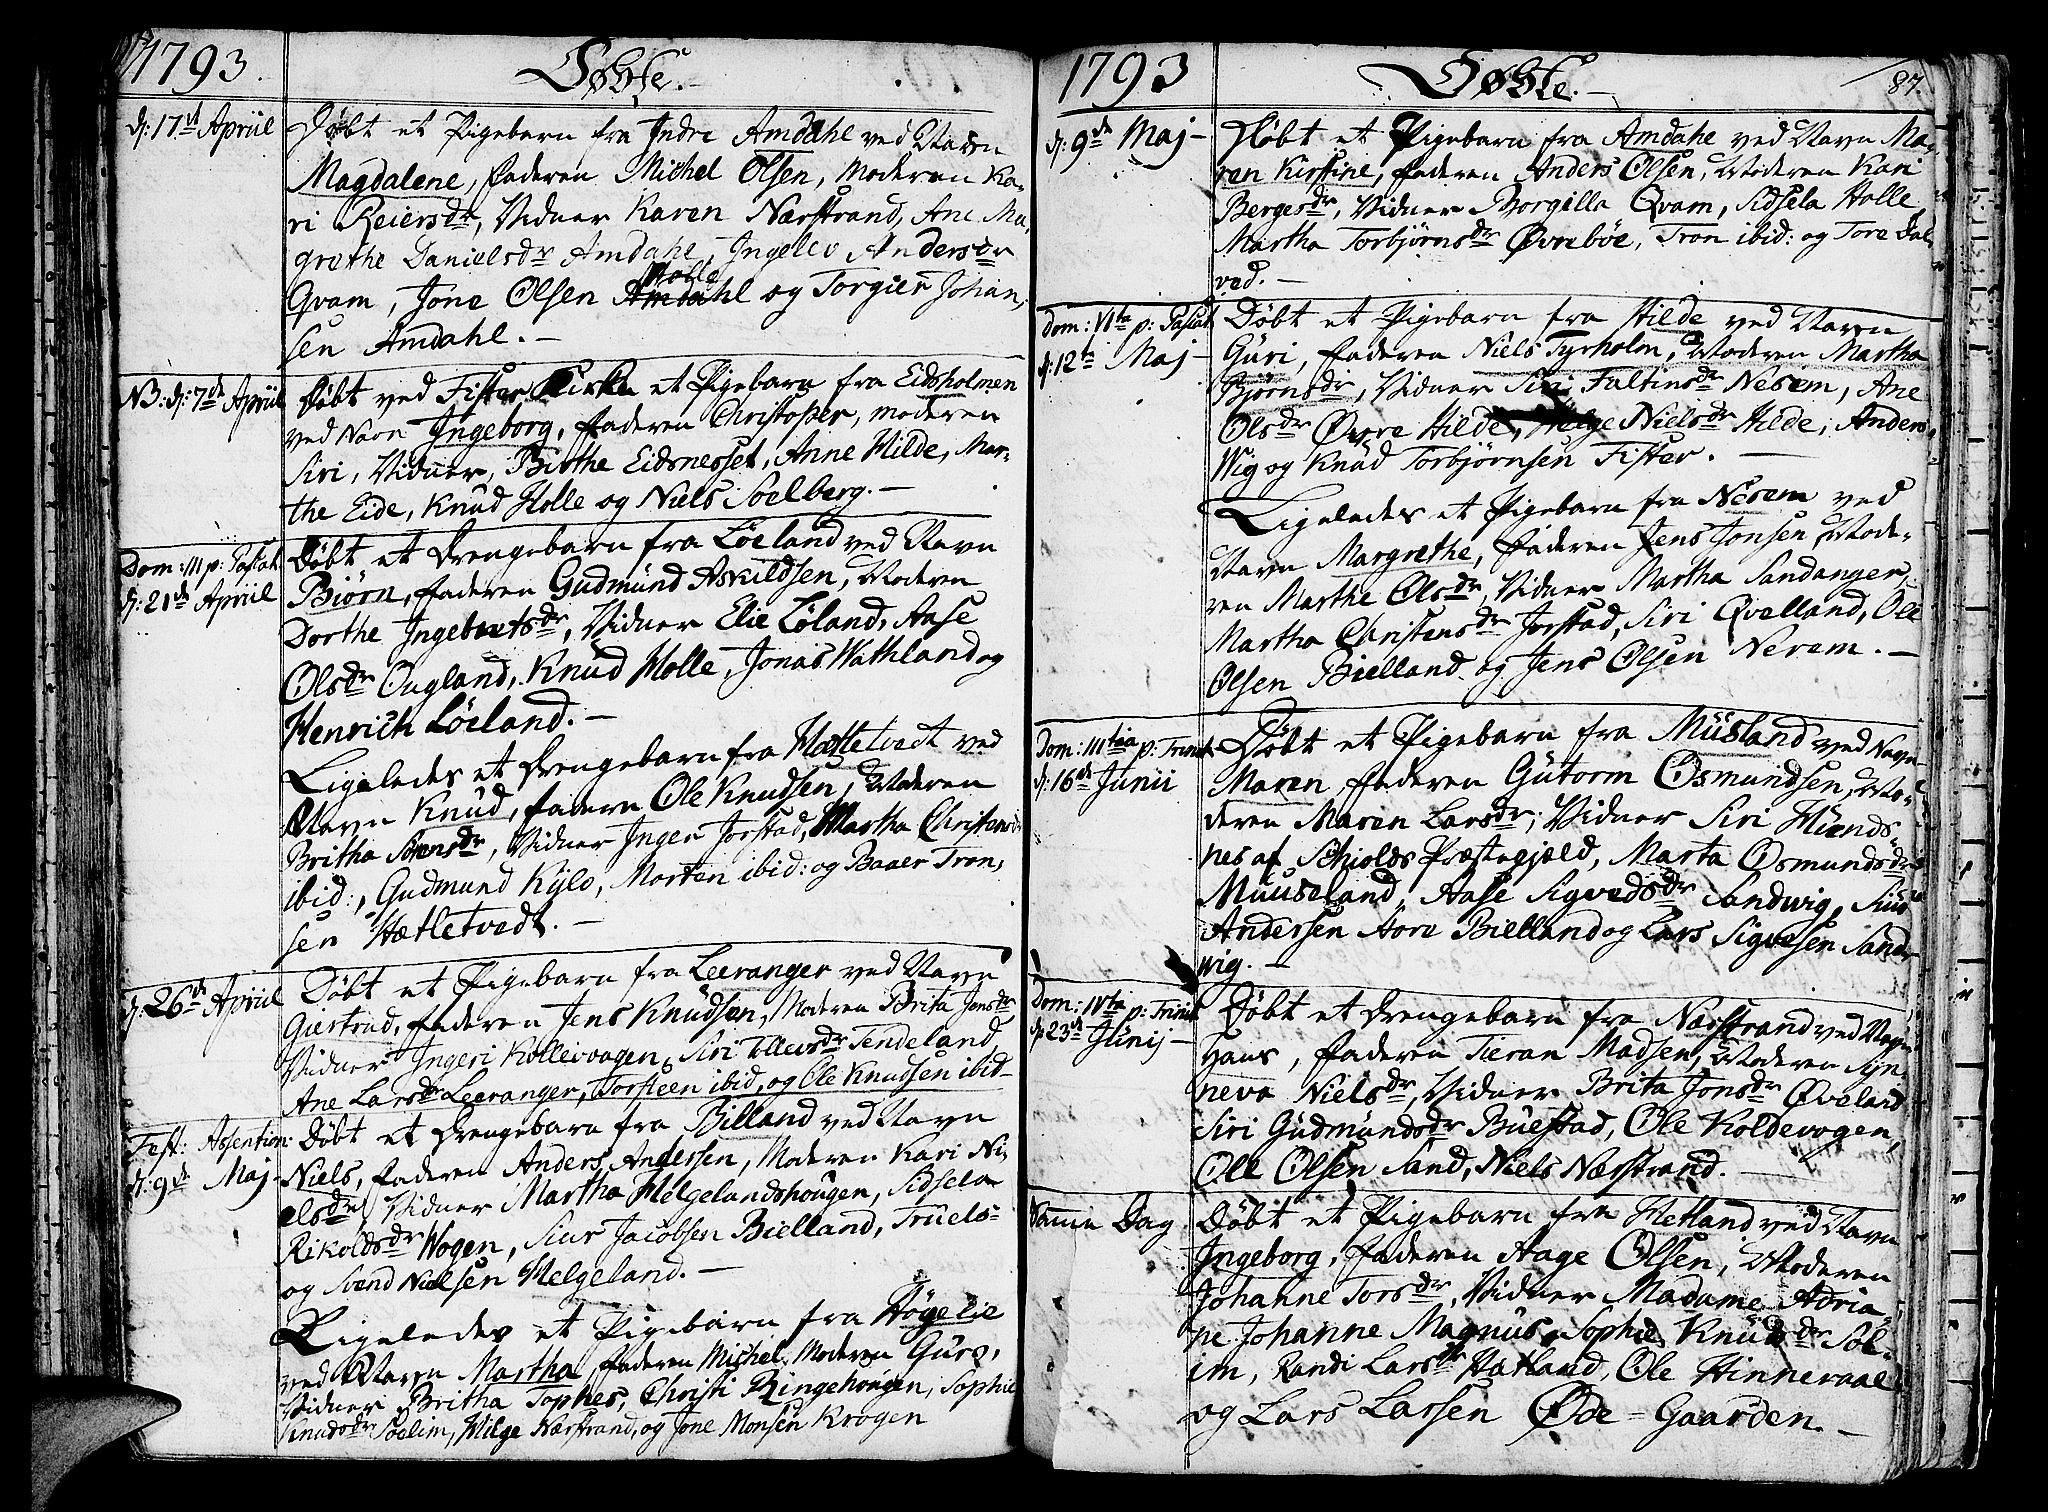 1793. Døbte.
d: 17de Apriil Døbt et Pigebarn fra Indre Amdahl ved Navn
Magdalene, faderen Michel Olsen, Moderen Ka-
ri Reiersdr, Vidner Karen Nærstrand, Ane Ma-
grethe Danielsdr Amdahl, Ingelev Andersdr
Qvam, Jone Olsen Holle og Torgier Johan-
sen Amdahl. —
NB: d: 7de Apriil Døbt ved Fister Kirke et Pigebarn fra Eidsholmen
ved Navn Ingeborg, faderen Christopher, moderen
Siri, Vidner, Birthe Eidsnesset, Anne Hilde, Mar-
the Eide, Knud Holle og Niels Soelberg. —
Dom: III p: Pascat: Døbt et Drengebarn fra Löeland ved Navn
d: 21de Apriil Biørn, faderen Gudmund Askildsen, Moderen
Dorthe Ingebretsdr, Vidner Elie Löland, Aase
Olsdr Ougland, Knud Holle, Jonas Wathland og
Henrich Löeland. —
Ligeledes et Drengebarn fra Hættetvedt ved
Navn Knud, faderen Ole Knudsen, Moderen
Britha Sørensdr, Vidner Inger Jorstad, Martha Christensdr
ibid:, Gudmund Kylv, Morten ibid: og Baaer Tron-
sen Hætletvedt. —
d: 26de Apriil Døbt et Pigebarn fra Leeranger ved Navn
Giertrud, faderen Jens Knudsen, Moderen Brita Jonsdr
Vidner Ingeri Kollevaagen, Siri Tollevsdr Tendeland,
Ane Larsdr Leeranger, Torsteen ibid, og Ole Knudsen ibid —
Fest: Assention: Døbt et Drengebarn fra Billand ved Navn
d: 9de Maj — Niels, faderen Anders Andersen, Moderen Kari Ni-
elsdr, Vidner Martha Helgelandshougen, Sidsela
Rikoldsdr Wogen, Siur Jacobsen Bielland, Truels-
og Svend Nielsen Helgeland. —
Ligeledes et Pigebarn fra Högelie
ved Navn Martha, faderen Michel, Moderen Guro,
Vidner Britha Tophes, Christi Ringehougen, Sophie
Knudsdr Soelim, Helge Nærstrand, og Jone Monsen Krogen
1793 Døbte. — 87.
d: 9de Maj — Døbt et Pigebarn fra Amdahl ved Navn Ma-
ren Kirstine, faderen Anders Olsen, Moderen Kari
Bergesdr, Vidner Borgilla Qvam, Sidsela Holle
Martha Torbjørnsdr Øvrebøe, Tron ibid: og Tore Dal-
ved. —
Dom: VIta p: Pascat: Døbt et Pigebarn fra Hilde ved Navn
d: 12te Maj — Guri, faderen Niels Tyrholm, Moderen Martha
Bjørnsdr, Vidner Siri Faltinsdr Nesem, Ane
Olsdr Øvre Hilde, Helge Nielsdr Hilde, Anders
Wig og Knud Torbjörnsen Fister. —
Ligeledes et Pigebarn fra Nesem ved
Navn Margrethe, faderen Jens Jonsen Mode-
ren Marthe Olsdr, Vidner Martha Sandanger,
Martha Christensdr Jorstad, Siri Qvelland, Ole
Olsen Bielland og Jens Olsen Nesem. —
Dom: IIItia p: Trinit: Døbt et Pigebarn fra Müsland ved Navn
d: 16de Junii Maren, faderen Gutorm Osmundsen, Mo-
deren Maren Larsdr, Vidner Siri Hinds-
nes af Schiolds Præstegjæld, Marta Osmundsdr
Muusland, Aase Sigvedsdr Sandwig, Siur
Andersen Aöre Bielland og Lars Sigvesen Sand-
wig. —
Dom: IVta p: Trinit: Døbt et Drengebarn fra Nærstrand ved Navn
d: 23de Junij — Hans, faderen Tieran Madsen, Moderen Syn-
neva Nielsdr, Vidner Brita Jonsdr Øveland
Siri Gudmundsdr Buestad, Ole Koldevogen,
Ole Olsen Sand, Niels Nærstrand. —
Samme Dag Døbt et Pigebarn fra Hetland ved Navn
Ingeborg, faderen Aage Olsen, Moderen
Johanne Torsdr, Vidner Madame Adria-
ne Johanne Magnus, Sophie Knudsdr Sol-
im, Randi Larsdr Hatland, Ole Hinneraae
og Lars Larsen Øde-Gaarden. —